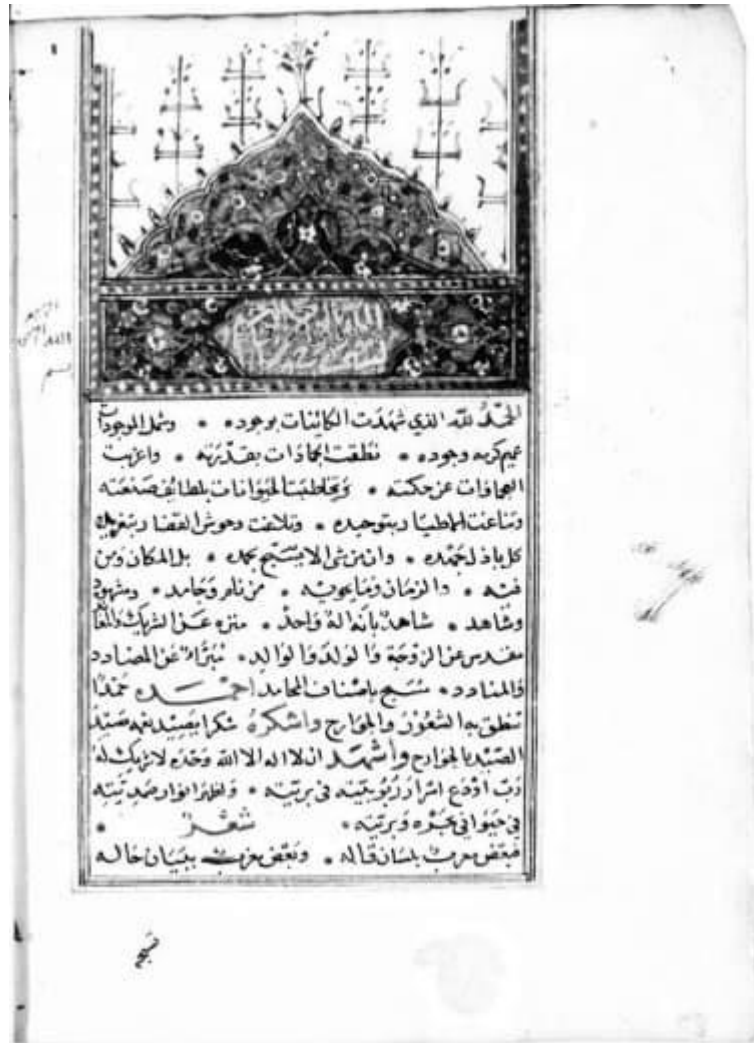 بسم الله الرحمن الرحيم
الحمد لله الذي شهدت الكاينات بوجوده • وشمل الموجودات
عميم كرمه وجوده • نطقت الجمادات بقدرته • واعربت
العجماوات عن حكمته • وتخاطبت الحيوانات بلطائف صنعته
وتناغت الاطيار بتوحيده • وتلاغت وحوش القفار بتغريده
كل باذل جهده • وان من شي الا يسبح بحمده • بل المكان ومن
فيه • والزمان وما يحويه • من نام وجامد • ومشهود
وشاهد • شاهد بانه اله واحد • منزه عن الشريك والمعاند
مقدس عن الزوجة والولد والوالد • مبرأ عن المضادد
والمنادد • مسبح باصناف المحامد احمده حمدا
تنطق به الشعور والجوارح واشكره شكرا يصيد نعمه صيد
الصيد بالجوارح واشهد ان لا اله الا الله وحده لا شريك له
رب اودع اسرار ربوبيته في بريته • واظهر انوار صمديته
في حيواني بحره وبريته • شعر •
فبعض معرب بلسان قاله • وبعض معرب ببيان حاله
تسبح